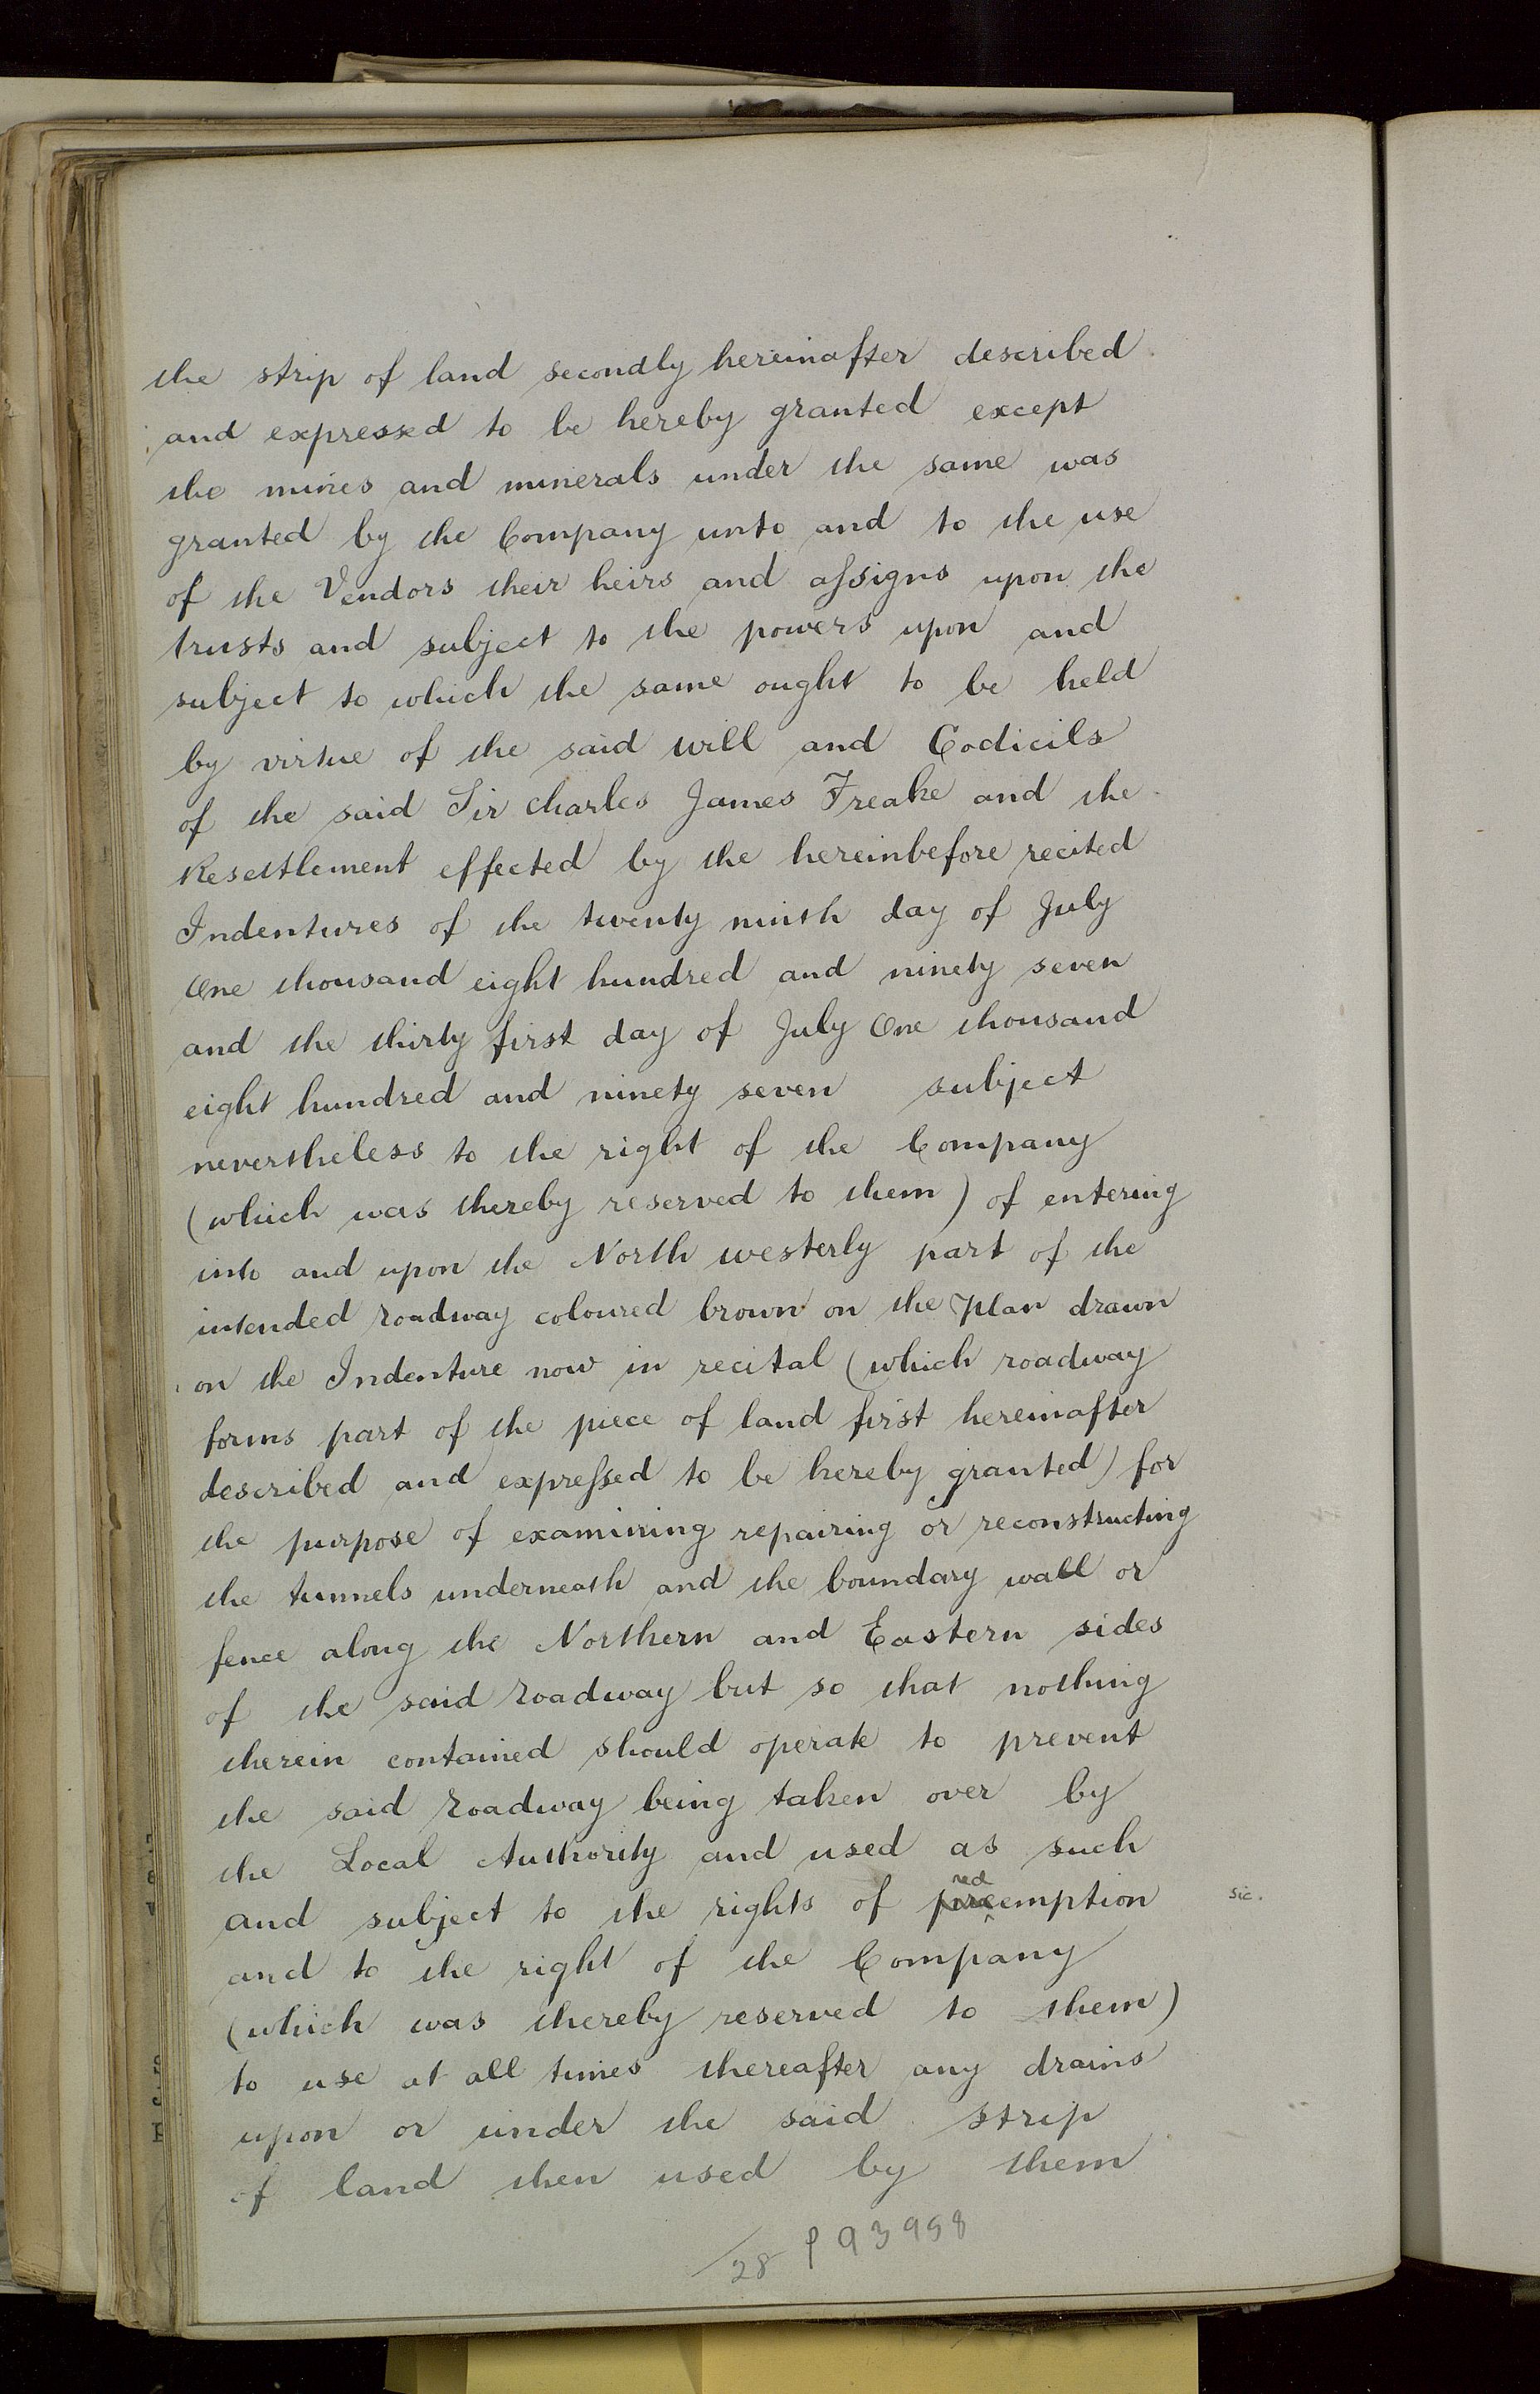 the strip of land secondly hereinafter described
and expressed to be hereby granted except
the mines and minerals under the same was
granted by the Company unto and to the use
of the Vendors their heirs and assigns upon the
trusts and subject to the powers upon and
subject to which the same ought to be held
by virtue of the said will and Codicils
of the said Sir Charles James Freake and the
Resettlement effected by the hereinbefore recited
Indentures of the twenty ninth day of July
One thousand eight hundred and ninety seven
and the thirty first day of July One thousand
eight hundred and ninety seven subject
nevertheless to the right of the Company
(which was thereby reserved to them) of entering
into and upon the North westerly part of the
intended roadway coloured brown on the Plan drawn
on the Indenture now in recital (which roadway
forms part of the piece of land first hereinafter
described and expressed to be hereby granted) for
the purpose of examining repairing or reconstructing
the tunnels underneath and the boundary wall or
fence along the Northern and Eastern sides
of the said roadway but so that nothing
therein contained should operate to prevent
the said roadway being taken over by
the Local Authority and used as such
red
and subject to the rights of preemption sic.
and to the right of the Company
(which was thereby reserved to them)
to use at all times thereafter any drains
upon or under the said strip
of land then used by them
28 P93958